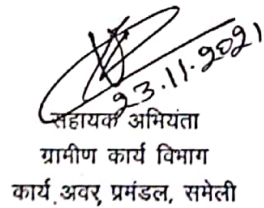 23.11.2021
सहायक अभियंता
ग्रामीण कार्य विभाग
कार्य अवर प्रमंडल, समेली